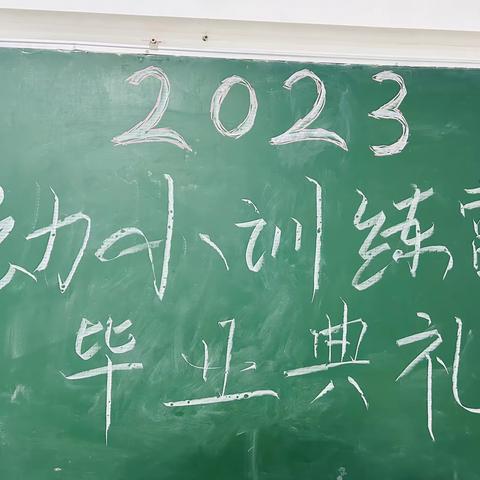 2023
幼小训练
毕业典礼